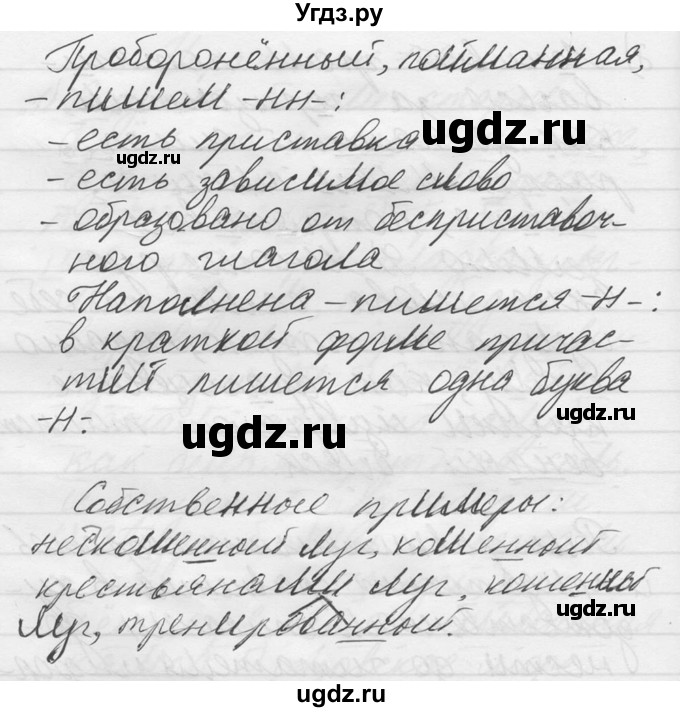 Угдз.ру
Проборонённый, пойманная,
- пишем -нн-:
- есть приставка
ugdz.ru
ugdz.ru
- есть зависимое слово
- образовано от бесприставоч-
ного глагола
Наполнена - пишется -н-:
в краткой форме причас-
тий пишется одна буква
ugdz.ru
-н-.
ugdz.ru
Собственные примеры:
нескошенный луг, кошенный
крестьянами луг, кошеный
ugdz.ru
луг, тренированный.
ugdz.ru